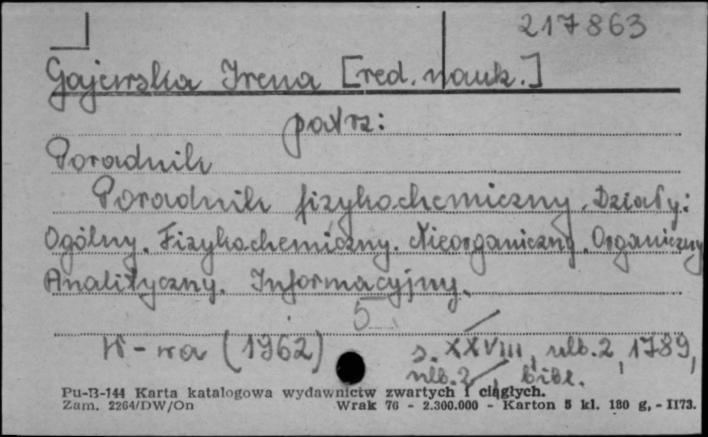 217863
Gajewska Irena [red. nauk.]
patrz:
Poradnik
Poradnik fizykochemiczny. Działy:
Ogólny. Fizykochemiczny. Nieorganiczny. Organiczny
Analityczny. Informacyjny.
5
W-wa (1962) s. XXVIII, nlb. 2, 1789,
nlb. 2, bibl.
Pu-B-144 Karta katalogowa wydawnictw zwartych i ciągłych.
Zam. 2264/DW/On Wrak 76 - 2.300.000 - Karton 5 kl. 180 g, - II73.